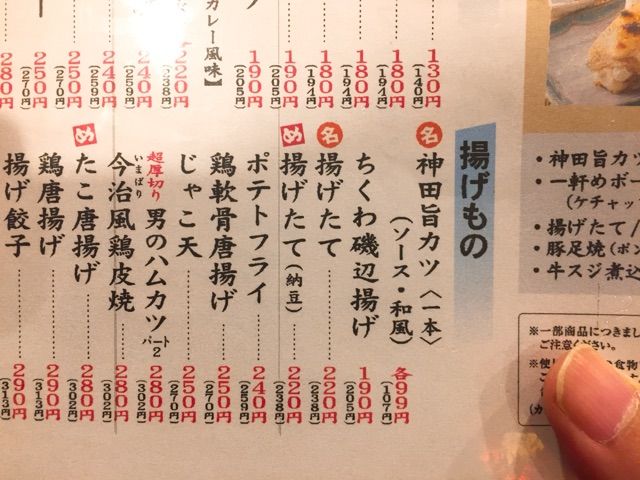 カレー風味】
130円
(140円)
180円
(194円)
180円
(194円)
180円
(194円)
190円
(205円)
190円
(205円)
220円
(238円)
240円
(259円)
240円
(259円)
250円
(270円)
250円
(270円)
280円
揚げもの
名 神田旨カツ〈一本〉
(ソース・和風)
各99円
(107円)
ちくわ磯辺揚げ
190円
(205円)
名 揚げたて
220円
(238円)
め 揚げたて(納豆)
220円
(238円)
ポテトフライ
240円
(259円)
鶏軟骨唐揚げ
250円
(270円)
じゃこ天
250円
(270円)
超厚切り 男のハムカツ パート2
280円
(302円)
今治風鶏皮焼
いまばり
280円
(302円)
め たこ唐揚げ
280円
(302円)
鶏唐揚げ
290円
(313円)
揚げ餃子
290円
(313円)
・神田旨カツ
・一軒めボー
(ケチャッ
・揚げたて/
・豚足焼(ポン
・牛スジ煮込
※一部商品につきまし
ご注意ください。
※使
の食物